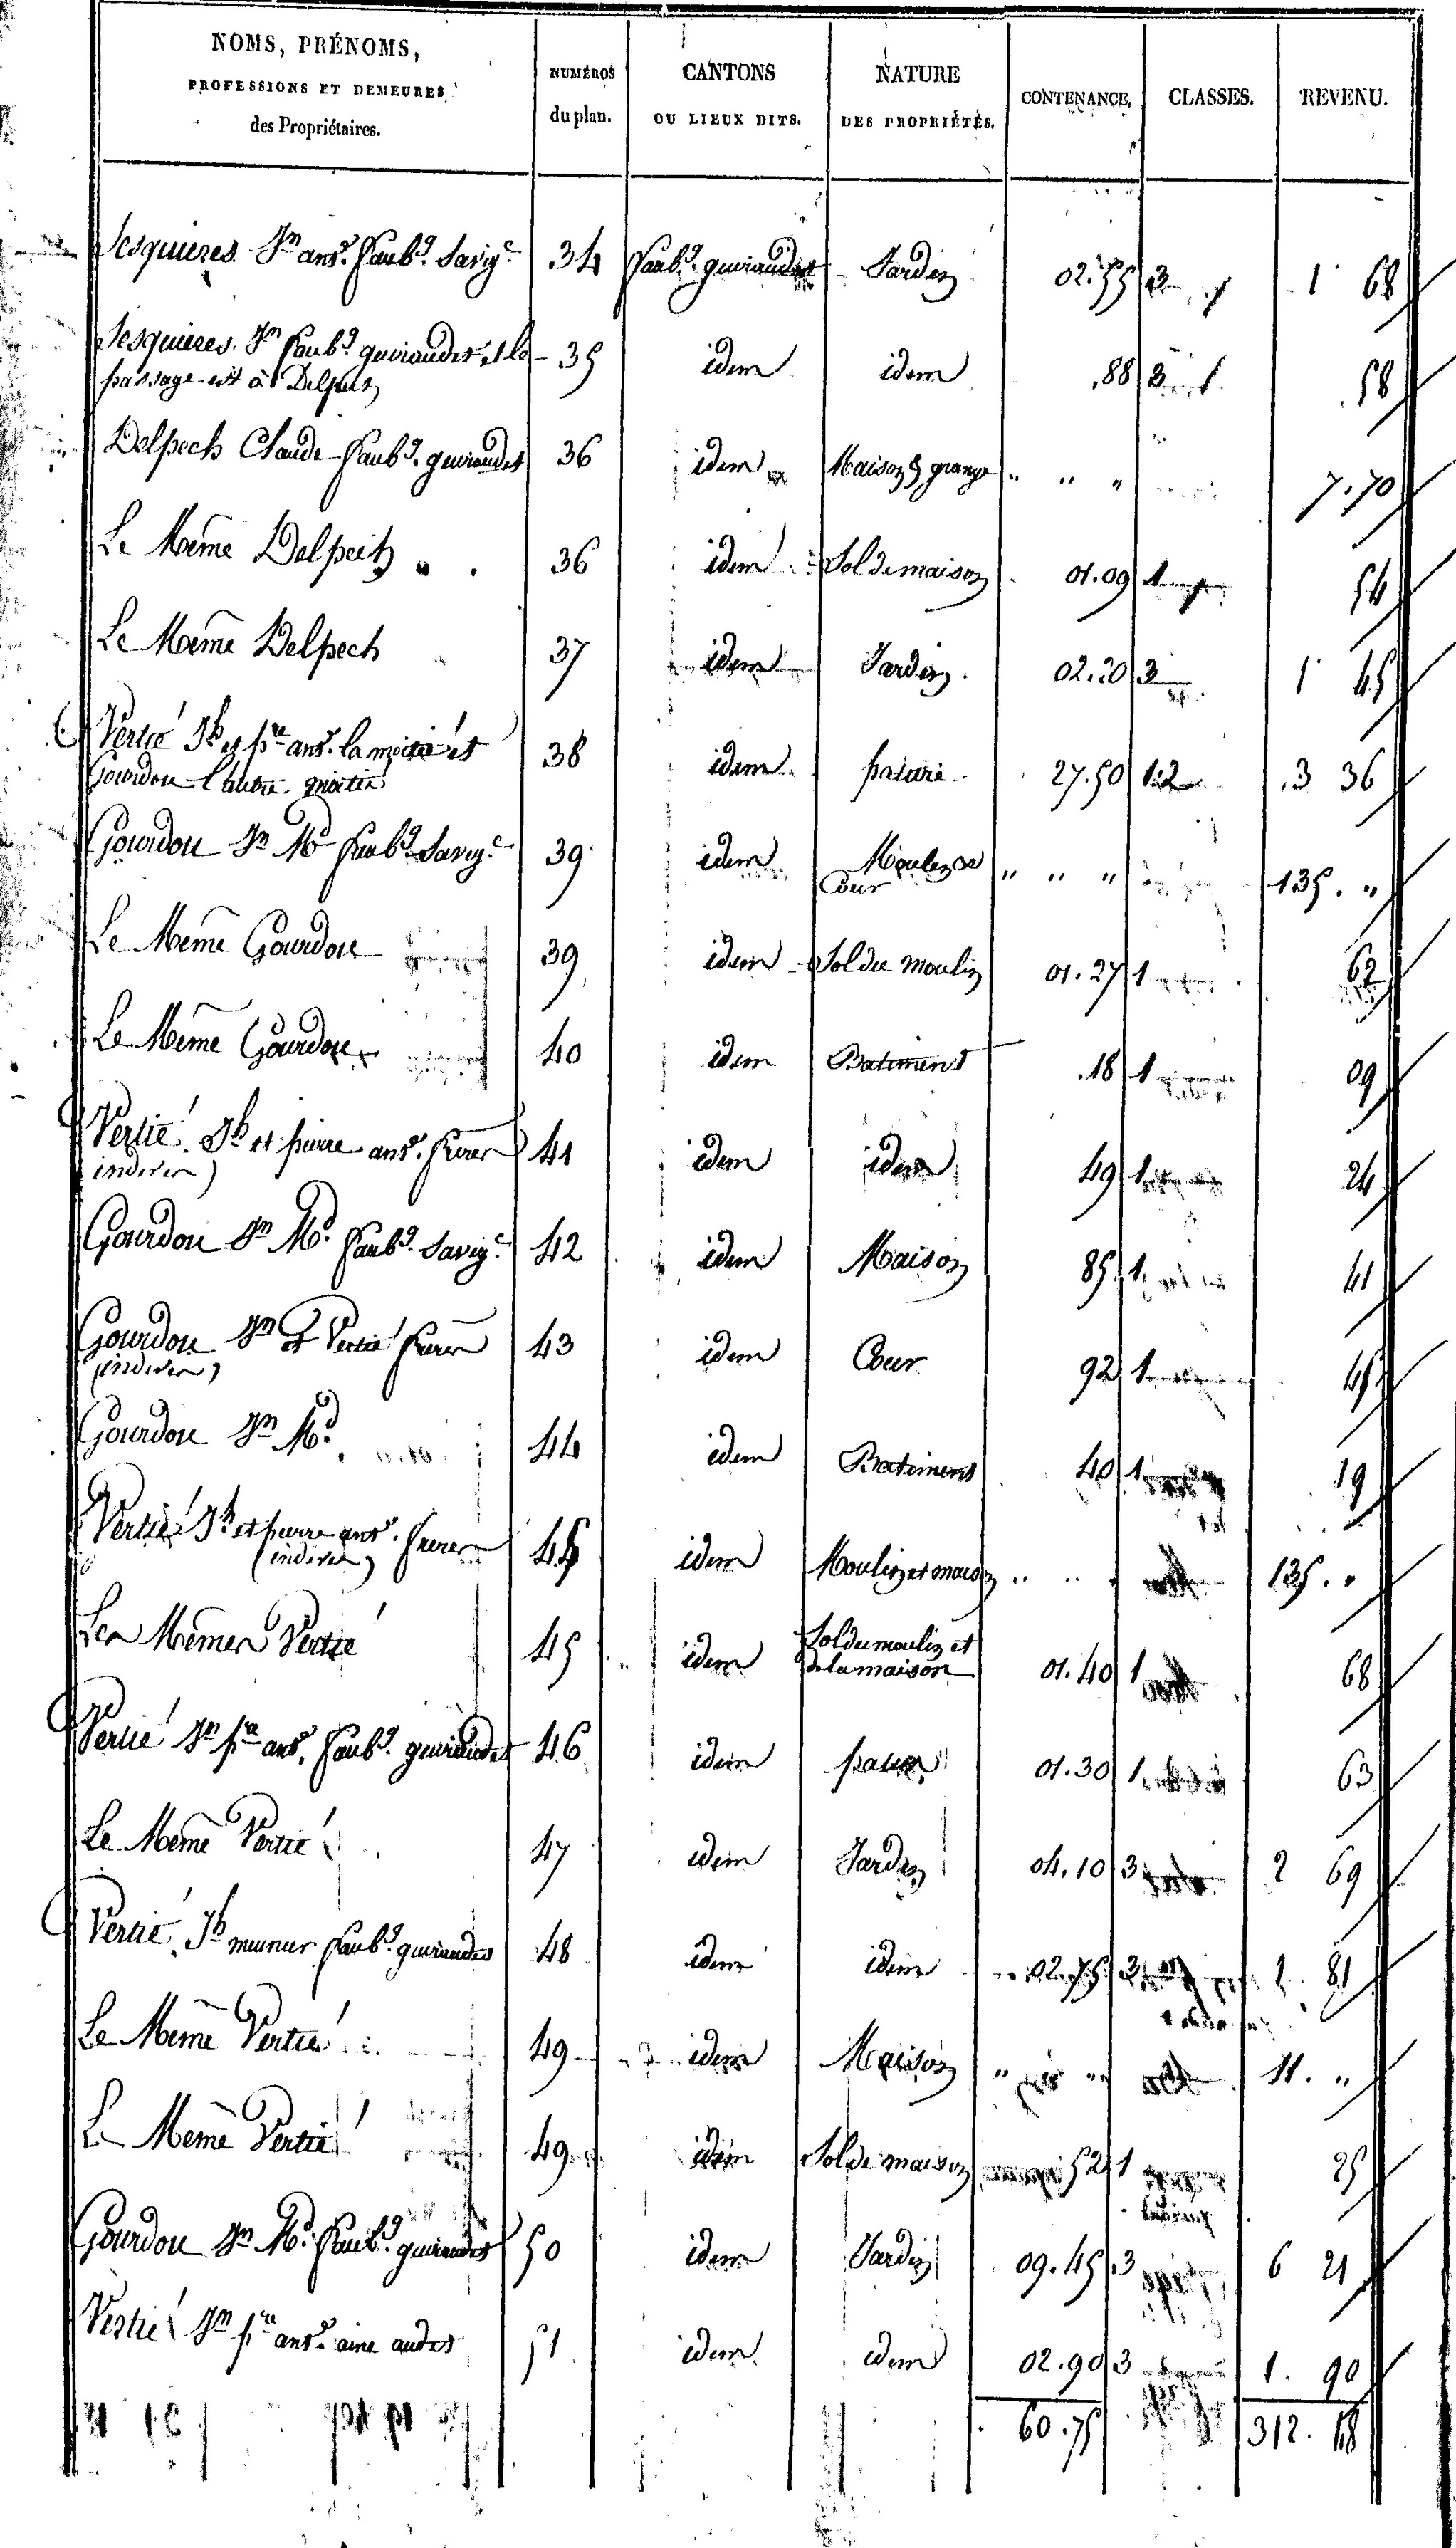 NOMS, PRÉNOMS,
PROFESSIONS ET DEMEURES
des Propriétaires.
NUMÉROS
du plan.
CANTONS
OU LIEUX DITS.
NATURE
DES PROPRIÉTÉS.
CONTENANCE.
CLASSES.
REVENU.
Sesquieres Jn ant. Faubg. Savige 34 Faubg. guiraudet Jardin 02.55 3 1 68
Sesquieres Jn Faubg guiraudet et le 35 idem idem .88 3 58
passage est à
Delpech Claude Faubg. guiraudet 36 idem Maison & grange " " " 7.70
Le Même Delpech 36 idem Sol de maison 01.09 1 54
Le Même Delpech 37 idem Jardin 02.20 3 1 45
Vertié Jh et pre ant. la moitié et 38 idem pature 27.50 1.2 3 36
Gourdou l'autre moitié
Gourdou Jn Md Faubg. Savige 39 idem Moulin & " " " 135. "
Cour
Le Même Gourdou 39 idem Sol du moulin 01.27 1 62
Le Même Gourdou 40 idem Batiment .18 1 09
Vertié Jh et pierre ant. freres 41 idem idem 49 1 24
indivis)
Gourdou Jn Md. Faubg. Savige 42 idem Maison 85 1 41
Gourdou Jn et Vertié freres 43 idem Cour 92 1 45
(indivis)
Gourdou Jn Md. 44 idem Batiment 40 1 19
Vertié Jh et pierre ant. freres 45 idem Moulin et maison " " " 135. "
(indivis)
Les Mêmes Vertié 45 idem Sol du moulin et 01.40 1 68
de la maison
Vertié Jn pre ant. Faubg. guiraudet 46 idem patus 01.30 1 63
Le Même Vertié 47 idem Jardin 04.10 3 2 69
Vertié Jh meunier Faubg. guiraudet 48 idem idem 02.75 3 1 81
Le Même Vertié 49 idem Maison " " " 11. "
Le Même Vertié 49 idem Sol de maison 52 1 25
Gourdou Jn Md. Faubg. guiraudet 50 idem Jardin 09.45 3 6 21
Vertié Jn pre ant. ainé audet 51 idem idem 02.90 3 1. 90
60.75 312. 68